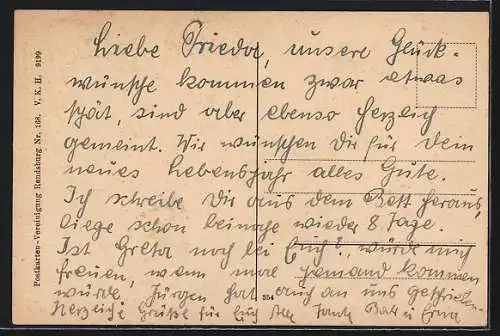 Liebe Frieda, unsere Glück-
wünsche kommen zwar etwas
spät, sind aber ebenso herzlich
gemeint. Wir wünschen Dir für Dein
neues Lebensjahr alles Gute.
Ich schreibe Dir aus dem Bett heraus,
liege schon beinahe wieder 8 Tage.
Ist Greta noch bei Euch?, würde mich
freuen, wenn mal jemand kommen
würde. Jürgen hat auch an uns geschrieben.
Herzliche Grüße für Euch alle Tante und Erna
Postkarten-Vereinigung Rendsburg Nr. 168. V. K. H. 9199
354